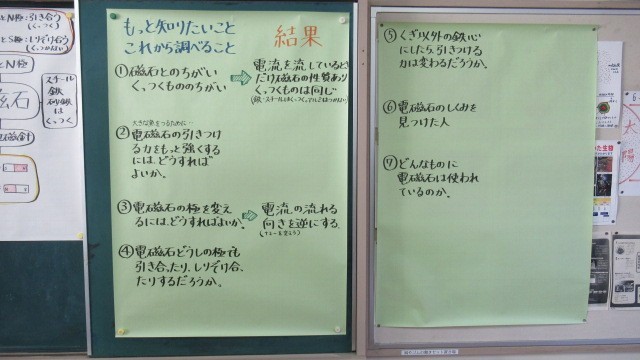 とN極:引き合う
(くっつく)
とS極:しりぞけ合う
N極
磁石
スチール
鉄
砂鉄
は
くっつく
もっと知りたいこと
これから調べること
結果
①磁石とのちがい
くっつくもののちがい
電流を流しているとき
だけ磁石の性質あり
くっつくものは同じ
大きな魚をつるために…
②電磁石の引きつけ
る力をもっと強くする
には、どうすれば
よいか。
③電磁石の極を変え
るには、どうすればよいか。
電流の流れる
向きを逆にする
④電磁石どうしの極でも
引き合ったり、しりぞけ合っ
たりするだろうか。
⑤くぎ以外の鉄心
にしたら、引きつける
力は変わるだろうか。
⑥電磁石のしくみを
見つけた人
⑦どんなものに
電磁石は使われ
ているのか。
太
陽